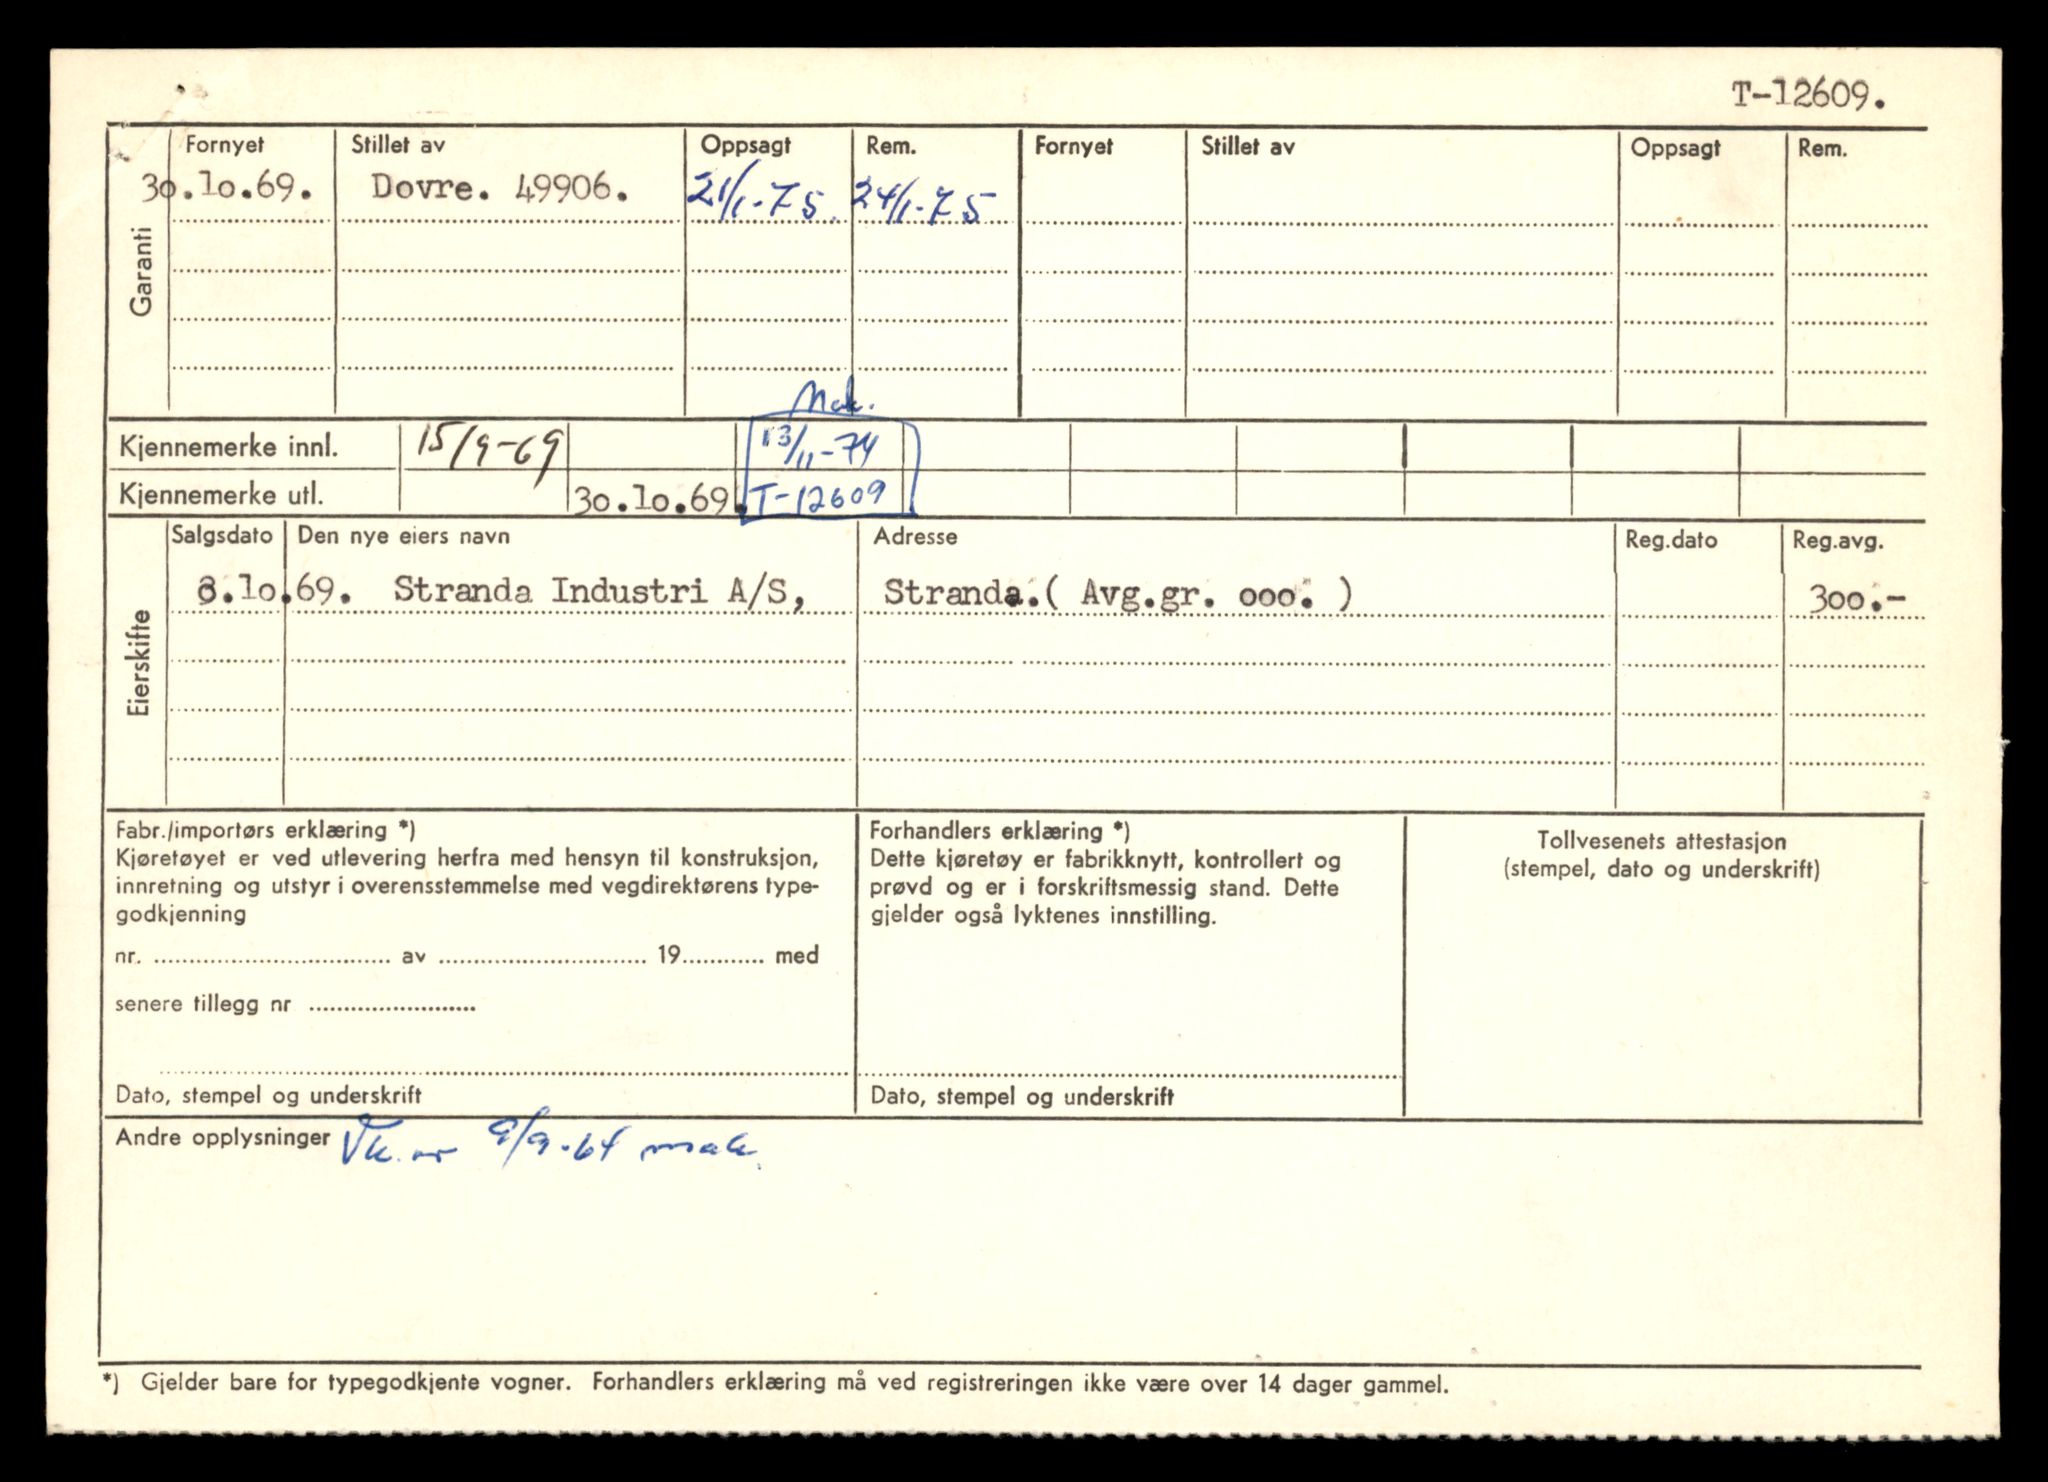 T-12609.
Garanti
Fornyet Stillet av Oppsagt Rem. Fornyet Stillet av Oppsagt Rem.
30.10.69. Dovre. 49906. 21/1-75. 24/1-75
Mak.
Kjennemerke innl. 15/9-69 13/11-74
Kjennemerke utl. 30.10.69. T-12609
Eierskifte
Salgsdato Den nye eiers navn Adresse Reg.dato Reg.avg.
8.10.69. Stranda Industri A/S, Stranda.( Avg.gr. 000. ) 300.-
Fabr./importørs erklæring *)
Kjøretøyet er ved utlevering herfra med hensyn til konstruksjon,
innretning og utstyr i overensstemmelse med vegdirektørens type-
godkjenning
nr. .................. av .................. 19............ med
senere tillegg nr ........................
Dato, stempel og underskrift
Forhandlers erklæring *)
Dette kjøretøy er fabrikknytt, kontrollert og
prøvd og er i forskriftsmessig stand. Dette
gjelder også lyktenes innstilling.
Dato, stempel og underskrift
Tollvesenets attestasjon
(stempel, dato og underskrift)
Andre opplysninger Vk. av 9/9-64 mak.
*) Gjelder bare for typegodkjente vogner. Forhandlers erklæring må ved registreringen ikke være over 14 dager gammel.